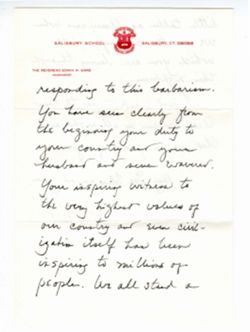 SALISBURY SCHOOL SALISBURY, CT. 06068
THE REVEREND EDWIN M. WARD
HEADMASTER
responding to this barbarism.
You have seen clearly from
the beginning your duty to
your country and your
husband and never wavered.
Your inspiring witness to
the very highest values of
our country and even civil-
ization itself has been
inspiring to millions of
people. We all stand a